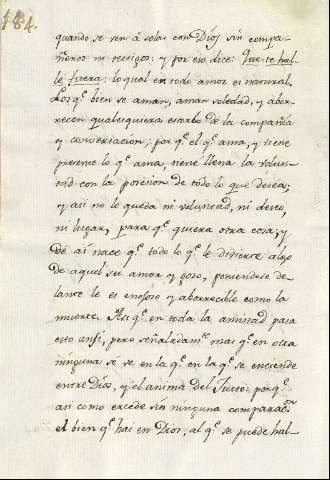 184.
quando se ven á solas con Dios sin compa-
ñeros ni testigos: y por eso dice: Que te hal-
le fuera: lo qual en todo amor es natural.
Los q.e bien se aman, aman soledad, y abor-
recen qualesquiera estorbo de la compañia
y conversacion: porq.e el q.e ama, y tiene
presente lo q.e ama, tiene llena la volun-
tad con la posesion de todo lo que desea;
y asi no le queda ni voluntad, ni deseo,
ni lugar, para q.e quiera otra cosa; y
de aí nace q.e todo lo q.e le divierte algo
de aquel su amor y gozo, poniendose de-
lante le es enojoso y aborrecible como la
muerte. Asi q.e en toda la amistad pasa
esto ansi, pero señaladam.e mas q.e en otra
ninguna se ve en la q.e en la q.e se enciende
entre Dios, y el anima del Justo: porq.e
asi como excede sin ninguna comparac.on
el bien q.e hai en Dios, al q.e se puede hal-